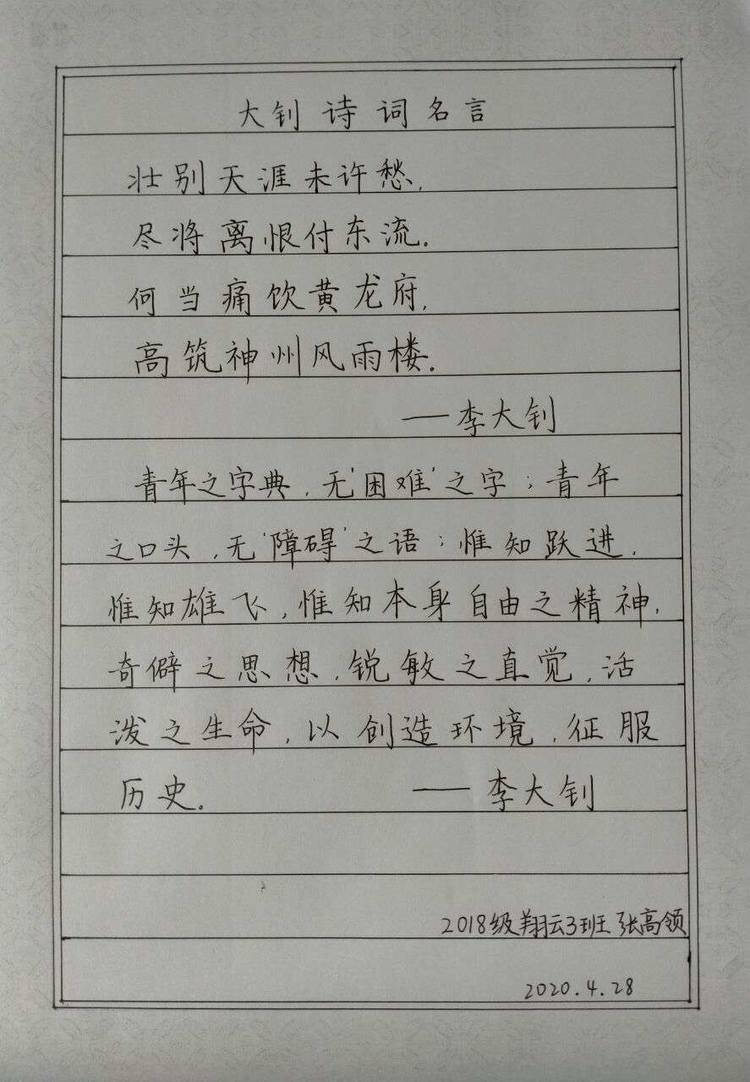 大钊诗词名言
壮别天涯未许愁，
尽将离恨付东流。
何当痛饮黄龙府，
高筑神州风雨楼。
——李大钊
青年之字典，无'困难'之字；青年
之口头，无'障碍'之语；惟知跃进，
惟知雄飞，惟知本身自由之精神，
奇僻之思想，锐敏之直觉，活
泼之生命，以创造环境，征服
历史。 ——李大钊
2018级翔云3班 张高领
2020.4.28